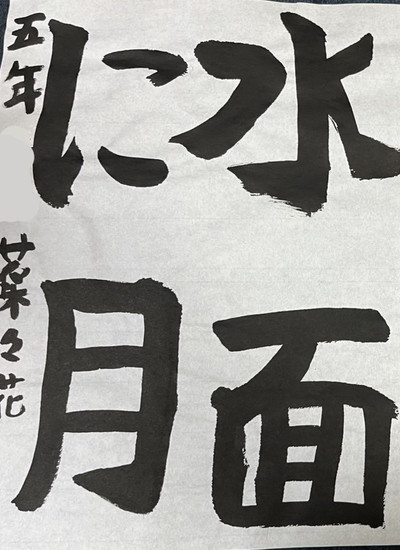 水面
に月
五年 菜々花